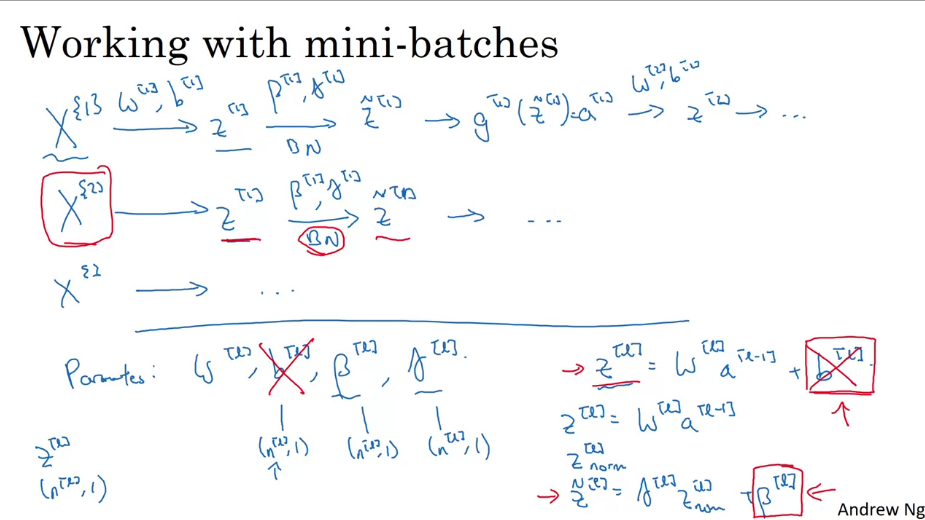 Working with mini-batches
X^{1} W^[1], b^[1] → z^[1] β^[1], γ^[1] → BN z̃^[1] → g^[1](z̃^[1]) = a^[1] W^[2], b^[2] → z^[2] → ...
X^{2} → z^[1] β^[1], γ^[1] → BN z̃^[1] → ...
X^{} → ...
Parameters: W^[l], b^[l], β^[l], γ^[l].
z^[l] = W^[l] a^[l-1] + b^[l].
z^[l] = W^[l] a^[l-1]
z^[l] (n^[l], 1) (n^[l], 1) (n^[l], 1)
z^[l]_norm
(n^[l], 1)
→ z̃^[l] = γ^[l] z^[l]_norm + β^[l] ←
Andrew Ng